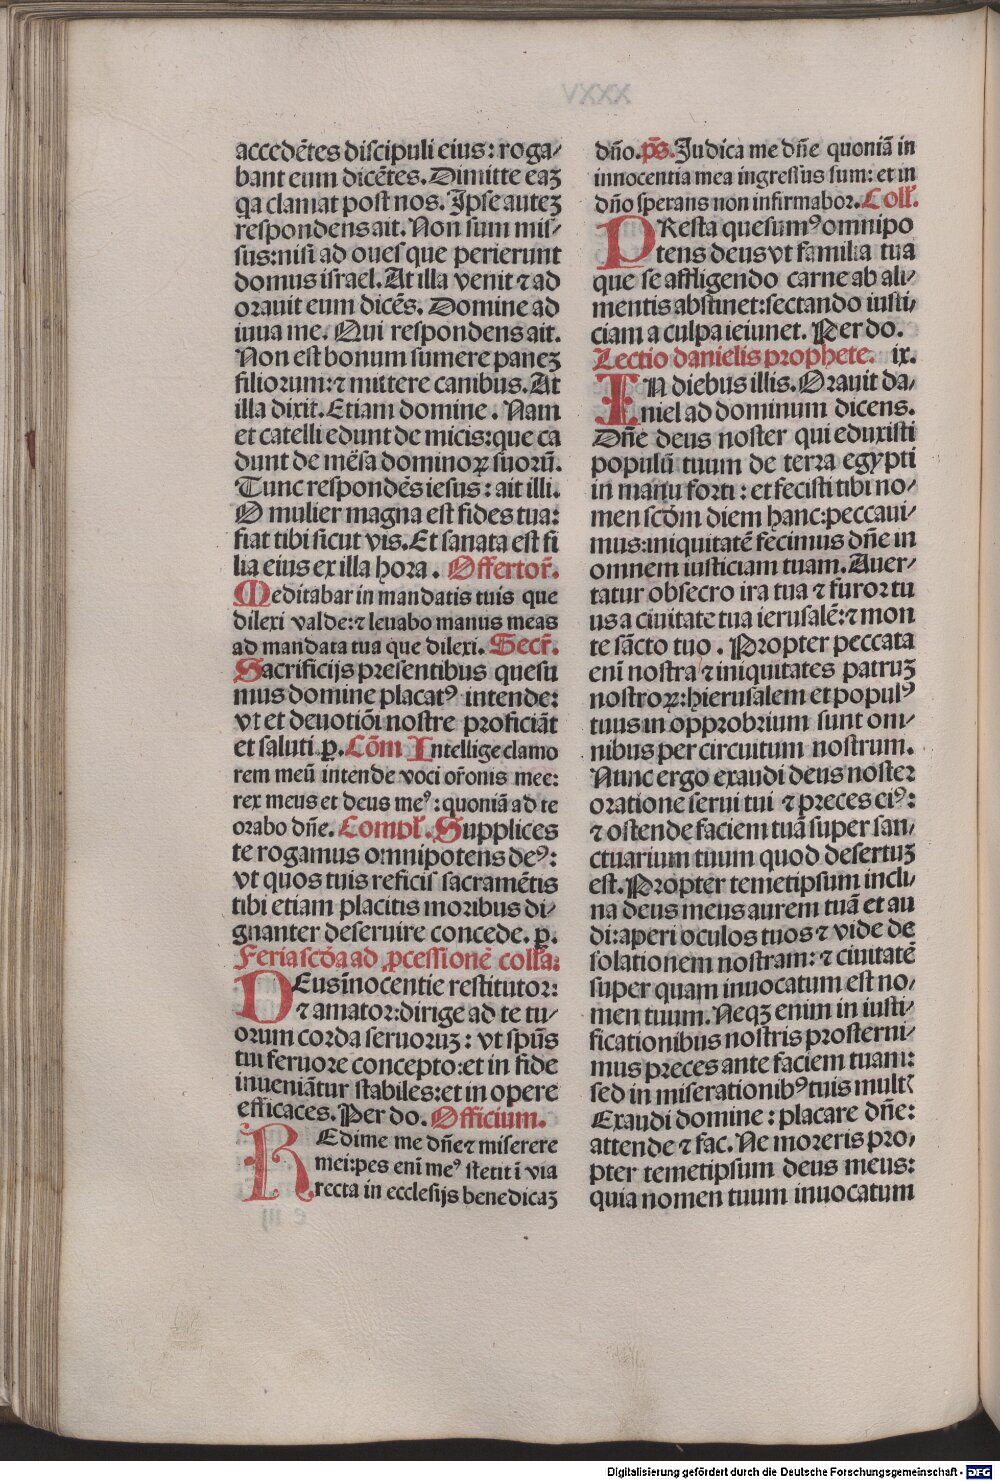 accedētes discipuli eius: roga/
bant eum dicētes. Dimitte eaꝫ
qa clamat post nos. Ipse auteꝫ
respondens ait. Non sum mis/
sus: nisi ad oues que perierunt
domus israel. At illa venit ⁊ ad
orauit eum dicēs. Domine ad
iuua me. Qui respondens ait.
Non est bonum sumere paneꝫ
filiorum: ⁊ mittere canibus. At
illa dixit. Etiam domine. Nam
et catelli edunt de micis: que ca
dunt de mēsa dominoꝝ suorū.
Tunc respondēs iesus: ait illi.
O mulier magna est fides tua:
fiat tibi sicut vis. Et sanata est fi
lia eius ex illa hora. Offertor̄.
Meditabar in mandatis tuis que
dilexi valde: ⁊ leuabo manus meas
ad mandata tua que dilexi. Secr̄.
Sacrificijs presentibus quesu
mus domine placatꝰ intende:
vt et deuotiōi nostre proficiāt
et saluti ꝑ. Cōm Intellige clamo
rem meū intende voci or̄onis mee:
rex meus et deus meꝰ: quoniā ad te
orabo dn̄e. Compl̄. Supplices
te rogamus omnipotens deꝰ:
vt quos tuis reficis sacramētis
tibi etiam placitis moribus di/
gnanter deseruire concede. ꝑ.
Feria scd̄a ad ꝓcessionē coll̄a:
DEus īnocentie restitutor:
⁊ amator: dirige ad te tu/
orum corda seruoruꝫ: vt spūs
tui feruore concepto: et in fide
inueniātur stabiles: et in opere
efficaces. Per do. Officium.
REdime me dn̄e ⁊ miserere
mei: pes enī meꝰ stetit ī via
recta in ecclesijs benedicaꝫ
dn̄o. ps̄. Iudica me dn̄e quoniā in
innocentia mea ingressus sum: et in
dn̄o sperans non infirmabor. Coll̄.
PResta quesumꝰ omnipo
tens deus vt familia tua
que se affligendo carne ab ali/
mentis abstinet: sectando iusti/
ciam a culpa ieiunet. Per do.
Lectio danielis prophete. ix.
IN diebus illis. Orauit da/
niel ad dominum dicens.
Dn̄e deus noster qui eduxisti
populū tuum de terra egypti
in manu forti: et fecisti tibi no/
men scd̄m diem hanc: peccaui/
mus: iniquitatē fecimus dn̄e in
omnem iusticiam tuam. Auer/
tatur obsecro ira tua ⁊ furor tu
us a ciuitate tua ierusalē: ⁊ mon
te sācto tuo. Propter peccata
enī nostra ⁊ iniquitates patruꝫ
nostroꝝ: hierusalem et populꝰ
tuus in opprobrium sunt om/
nibus per circuitum nostrum.
Nunc ergo exaudi deus noster
oratione serui tui ⁊ preces eiꝰ:
⁊ ostende faciem tuā super san/
ctuarium tuum quod desertuꝫ
est. Propter temetipsum incli/
na deus meus aurem tuā et au
di: aperi oculos tuos ⁊ vide de
solationem nostram: ⁊ ciuitatē
super quam inuocatum est no/
men tuum. Neqꝫ enim in iusti/
ficationibus nostris prosterni/
mus preces ante faciem tuam:
sed in miserationibꝰ tuis mult̄
Exaudi domine: placare dn̄e:
attende ⁊ fac. Ne moreris pro/
pter temetipsum deus meus:
quia nomen tuum inuocatum
Digitalisierung gefördert durch die Deutsche Forschungsgemeinschaft - DFG